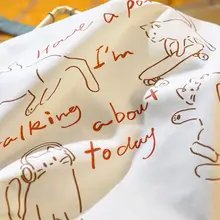 Have a
I'm
alking about
today